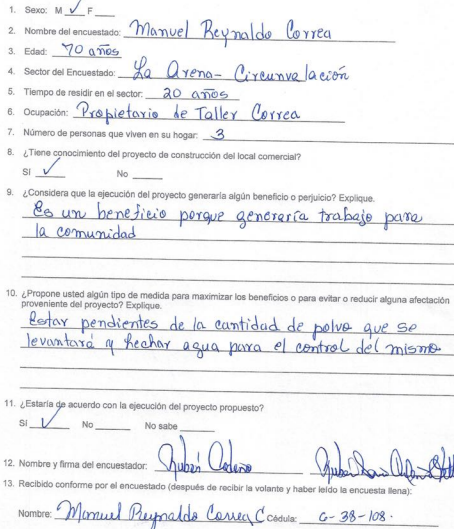 1. Sexo: M ✓ F ___
2. Nombre del encuestado: Manuel Reynaldo Correa
3. Edad: 70 años
4. Sector del Encuestado: La Arena- Circunvalación
5. Tiempo de residir en el sector: 20 años
6. Ocupación: Propietario de Taller Correa
7. Número de personas que viven en su hogar: 3
8. ¿Tiene conocimiento del proyecto de construcción del local comercial?
SI ✓ No ___
9. ¿Considera que la ejecución del proyecto generaría algún beneficio o perjuicio? Explique.
Es un beneficio porque generaría trabajo para
la comunidad
10. ¿Propone usted algún tipo de medida para maximizar los beneficios o para evitar o reducir alguna afectación
proveniente del proyecto? Explique.
Estar pendientes de la cantidad de polvo que se
levantará y hechar agua para el control del mismo
11. ¿Estaría de acuerdo con la ejecución del proyecto propuesto?
Sí ✓ No ___ No sabe ___
12. Nombre y firma del encuestador: Rubén Cedeño
13. Recibido conforme por el encuestado (después de recibir la volante y haber leído la encuesta llena):
Nombre: Manuel Reynaldo Correa C Cédula: 6-38-108.